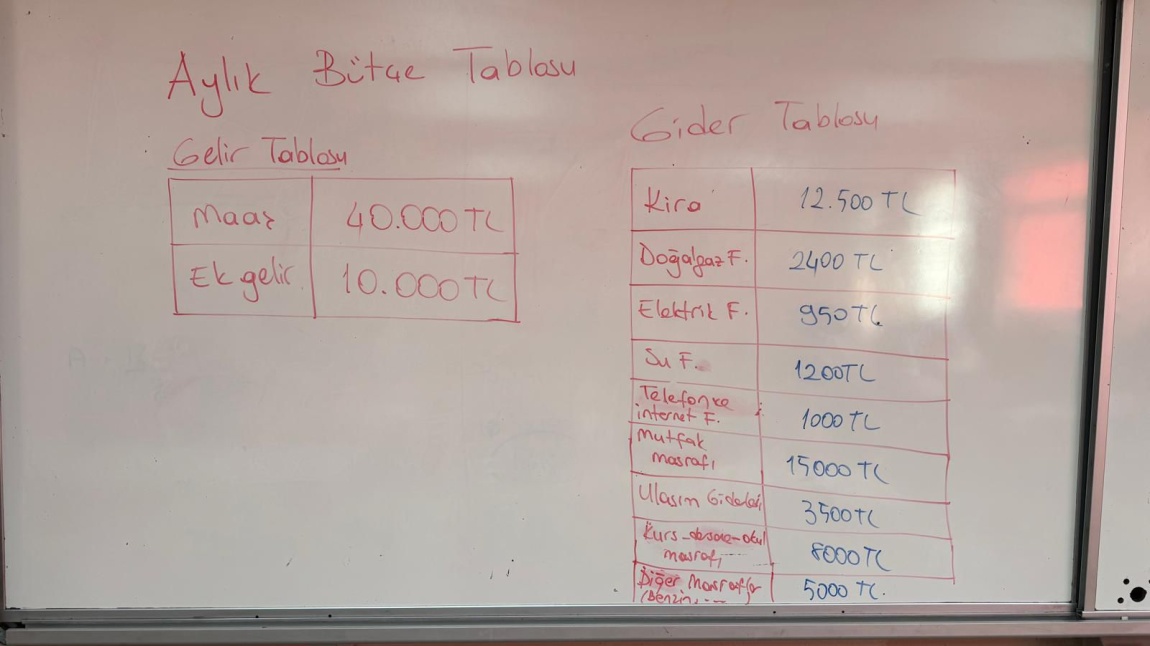 Aylık Bütçe Tablosu
Gelir Tablosu
Maaş 40.000 TL
Ek gelir 10.000 TL
Gider Tablosu
Kira 12.500 TL
Doğalgaz F. 2400 TL
Elektrik F. 950 TL
Su F. 1200 TL
Telefon ve
internet F. 1000 TL
Mutfak
masrafı 15000 TL
Ulaşım Giderleri 3500 TL
Kurs-dersane-okul
masrafı 8000 TL
Diğer Masraflar
(Benzin, ---) 5000 TL.